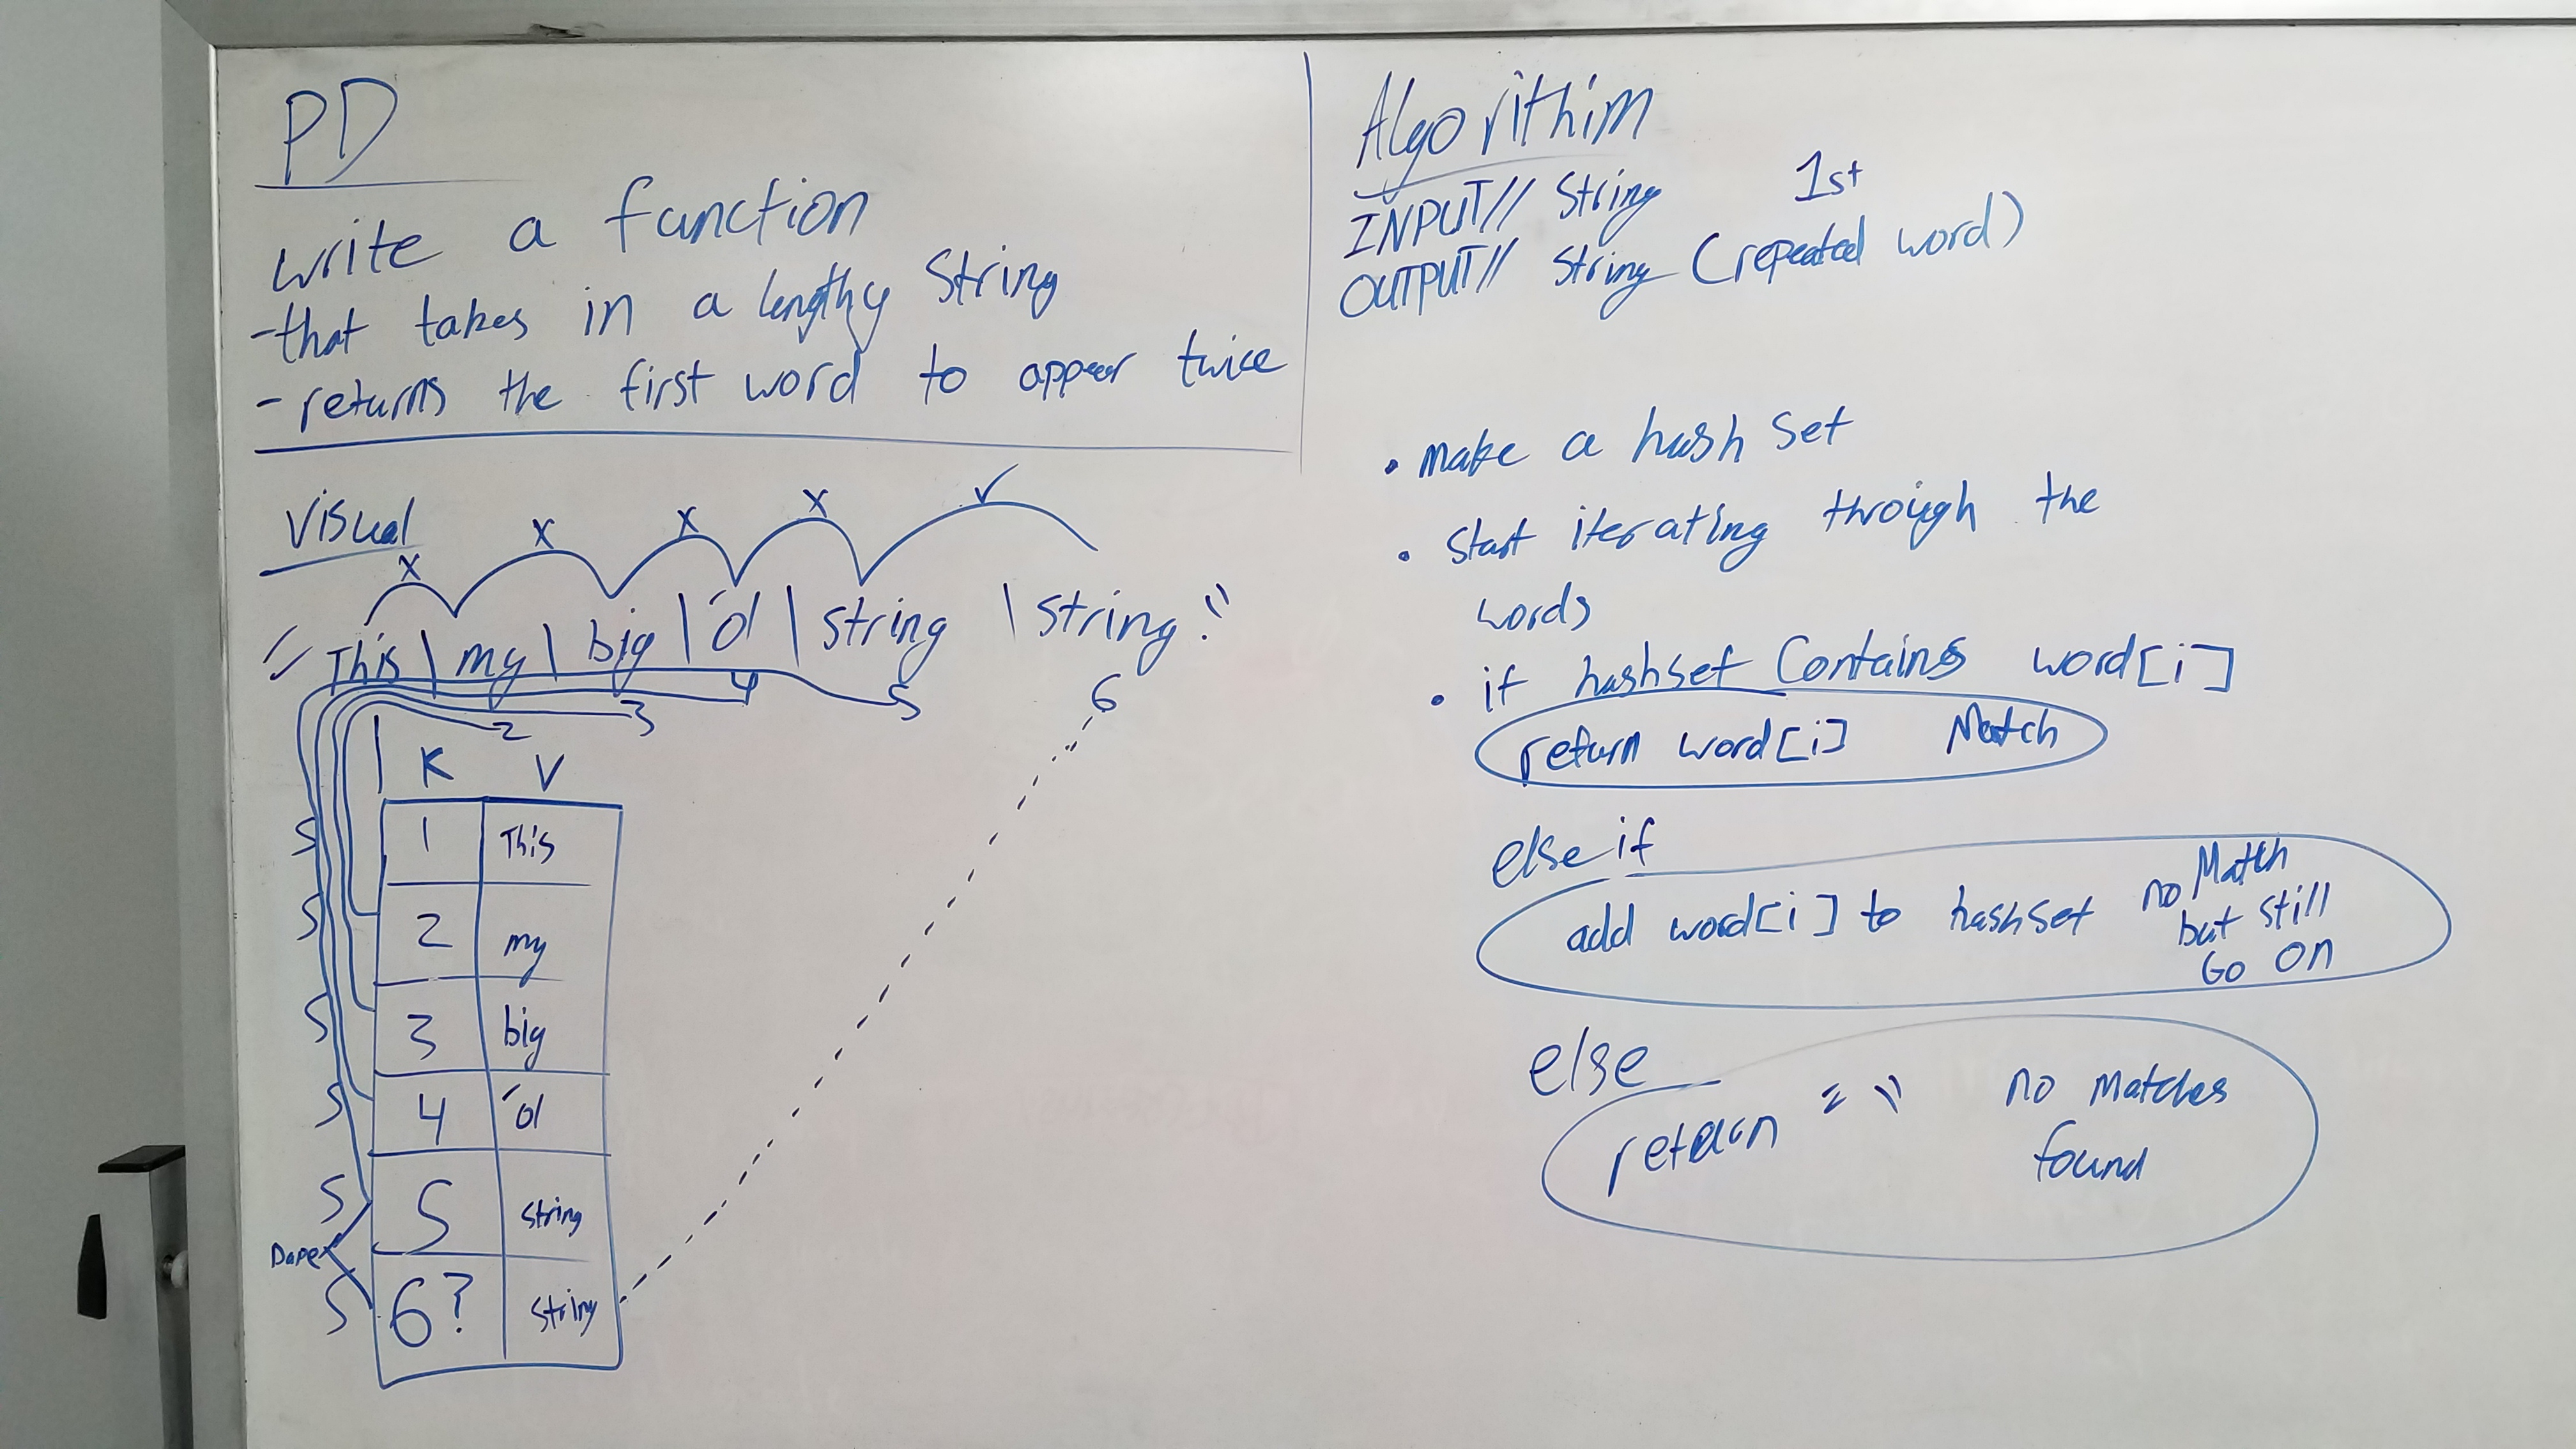 PD
write a function
-that takes in a lengthy String
- returns the first word to appear twice
Visual
X X X X ✓
"This | my | big | 'ol | string | string."
2 3 4 5 6
K V
1 This
2 my
3 big
4 'ol
5 string
6? string
S
S
S
S
S
S
Algorithim
INPUT// String
1st
OUTPUT// String (repeated word)
• make a hash set
• start iterating through the
words
• if hashset Contains word[i]
return word[i] Match
else if
add word[i] to hashset no Match
but still
Go on
else
return " " no matches
found